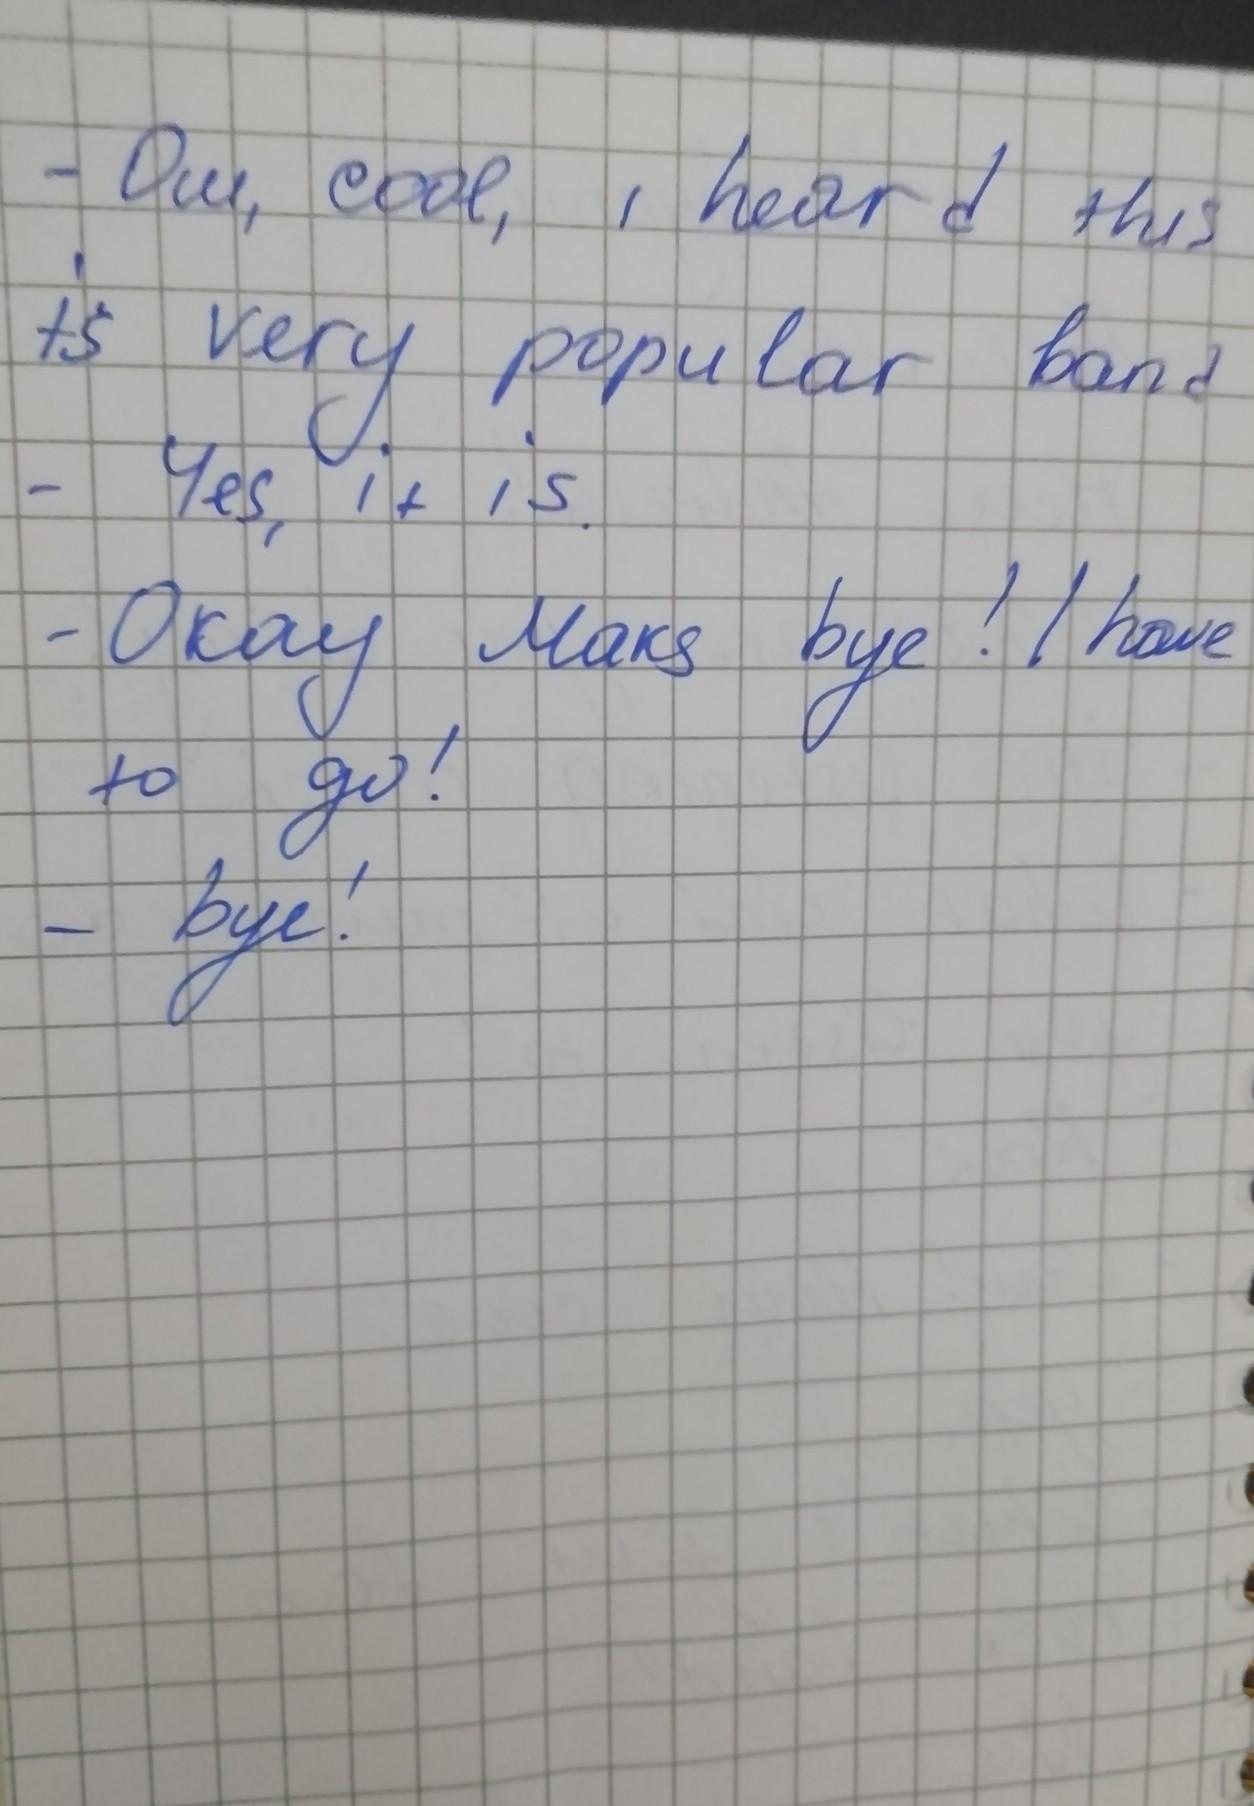 - Ou, cool, i heard this
is very popular band
- Yes, it is.
- Okay Maks bye! I have
to go!
- bye!